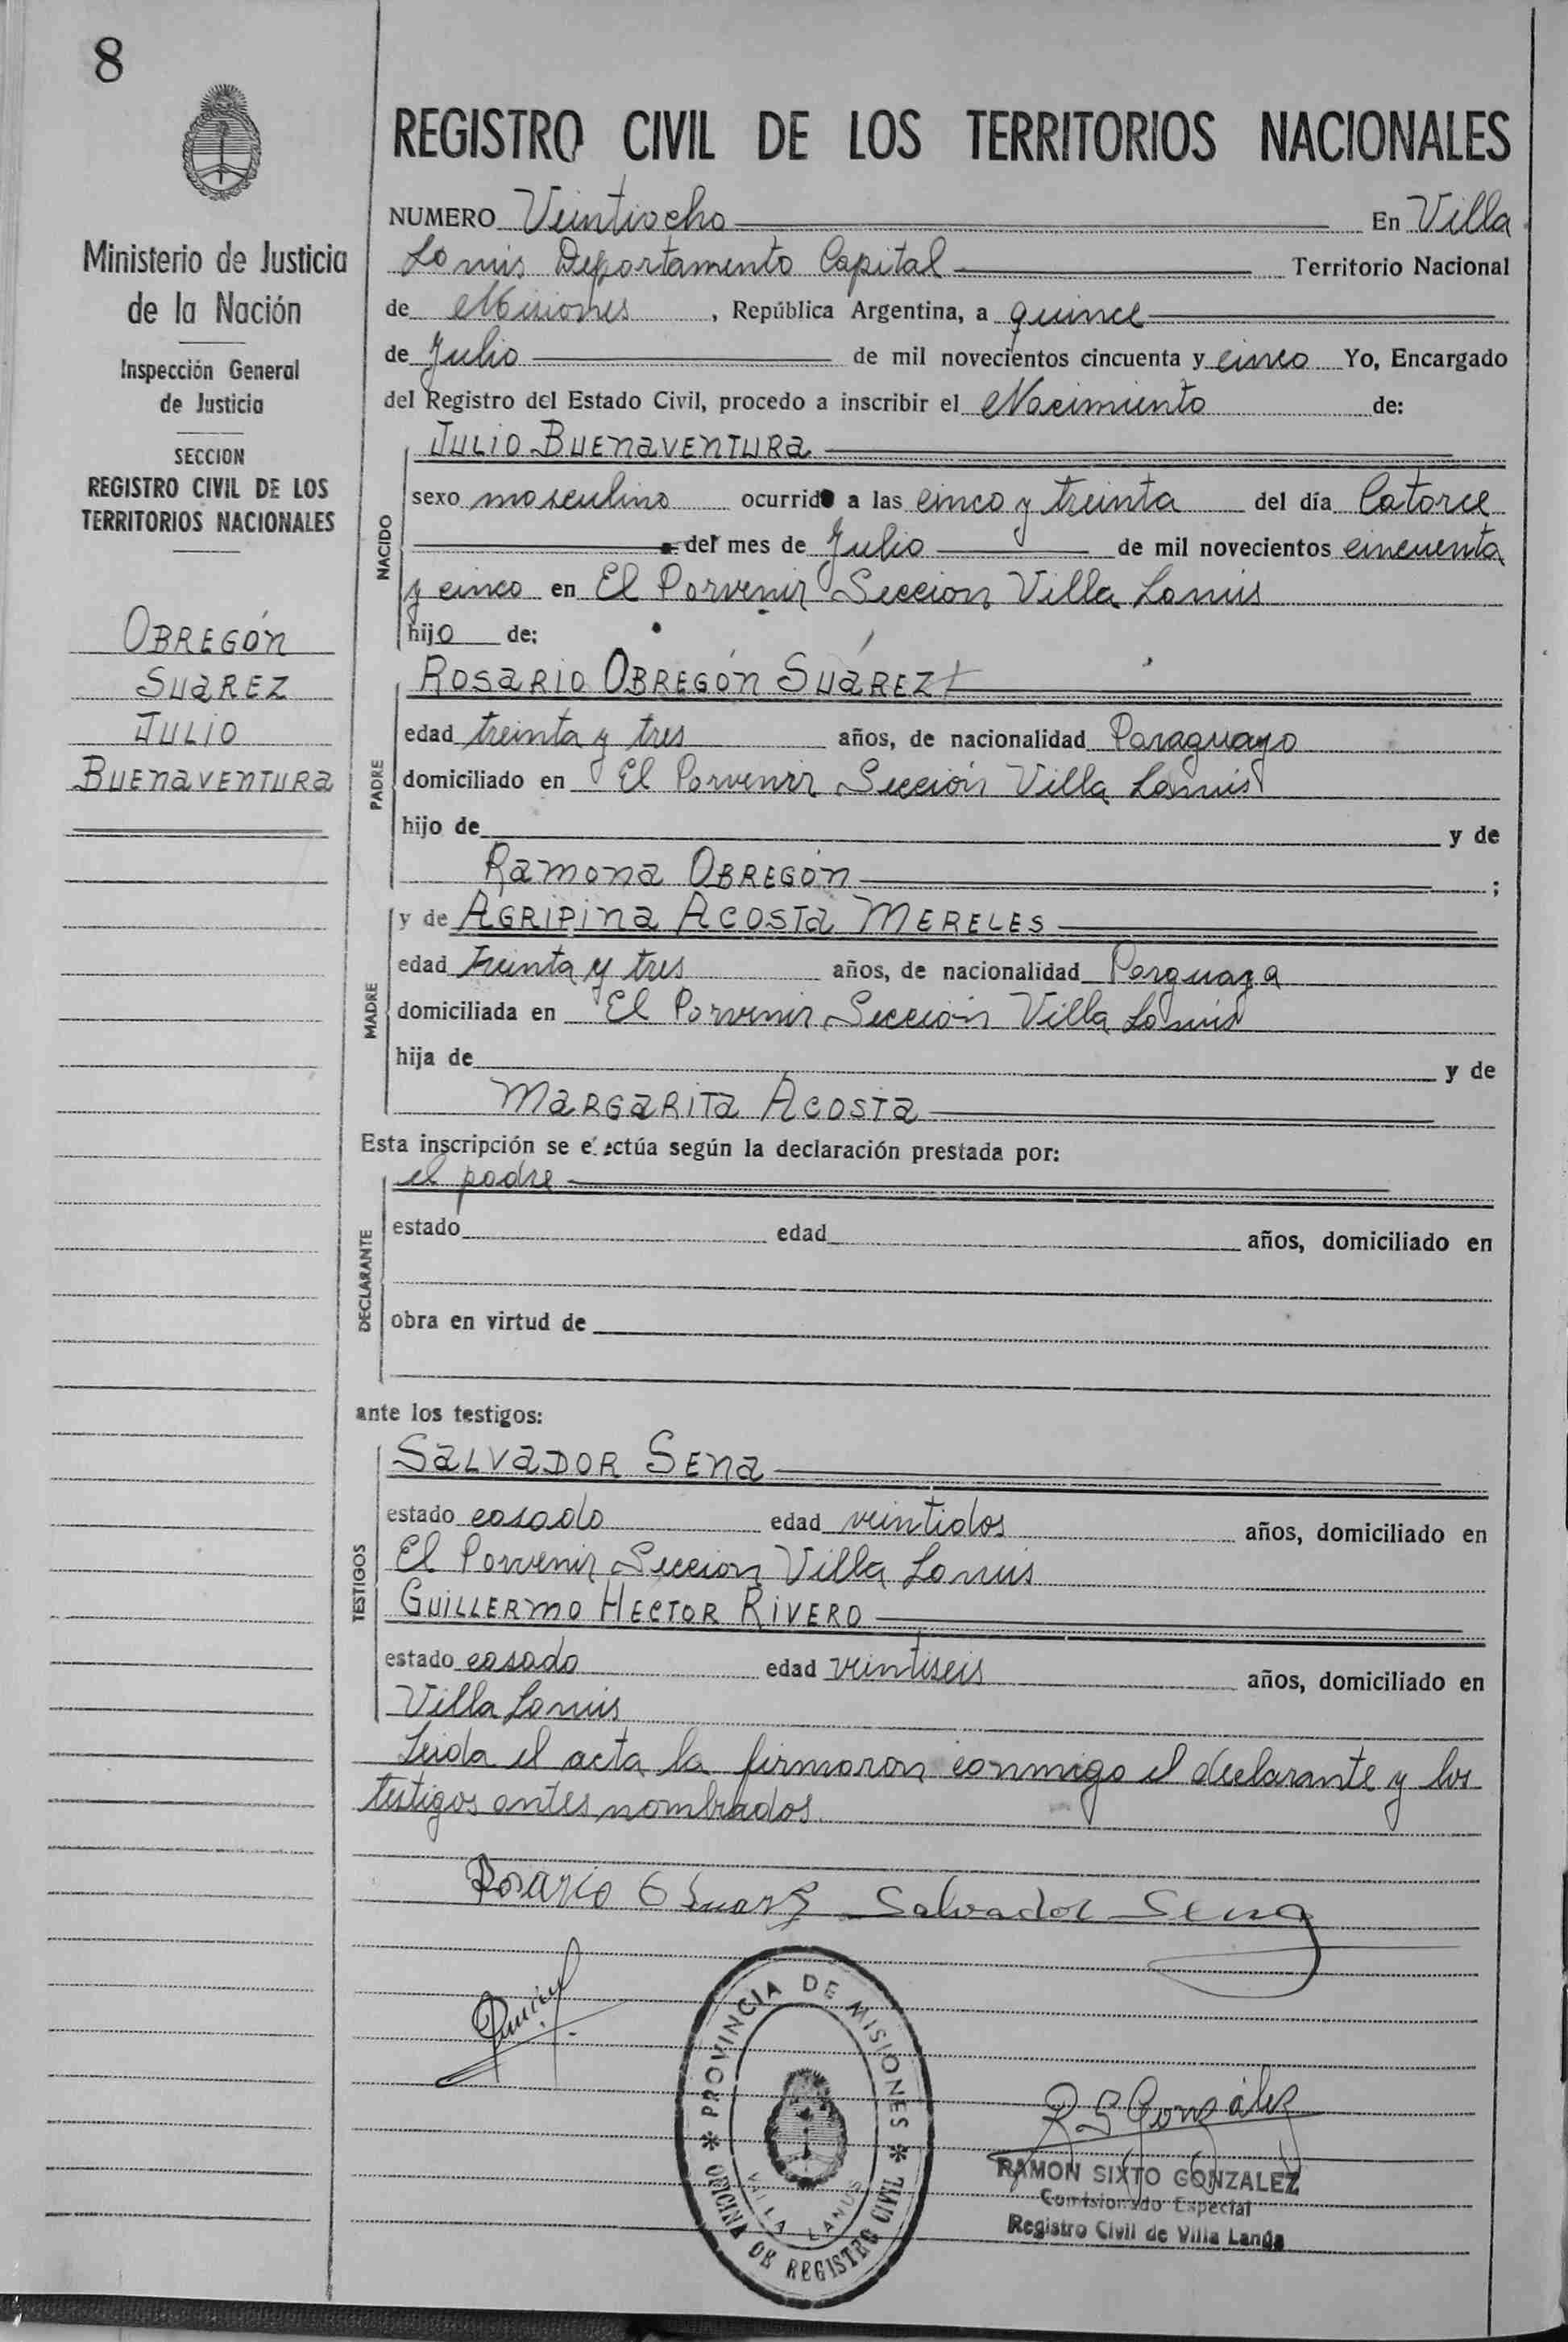 8
REGISTRO CIVIL DE LOS TERRITORIOS NACIONALES
Ministerio de Justicia
de la Nación
Inspección General
de Justicia
SECCION
REGISTRO CIVIL DE LOS
TERRITORIOS NACIONALES
OBREGÓN
SUAREZ
JULIO
BUENAVENTURA
NUMERO Veintiocho En Villa
Lanus Departamento Capital Territorio Nacional
de Misiones, República Argentina, a quince
de Julio de mil novecientos cincuenta y cinco Yo, Encargado
del Registro del Estado Civil, procedo a inscribir el Nacimiento de:
NACIDO
JULIO BUENAVENTURA
sexo masculino ocurrido a las cinco y treinta del día Catorce
del mes de Julio de mil novecientos cincuenta
y cinco en El Porvenir Seccion Villa Lanus
hijo de:
PADRE
ROSARIO OBREGÓN SUÁREZ
edad treinta y tres años, de nacionalidad Paraguayo
domiciliado en El Porvenir Sección Villa Lanus
hijo de y de
RAMONA OBREGÓN ;
MADRE
y de AGRIPINA ACOSTA MERELES
edad treinta y tres años, de nacionalidad Parguaya
domiciliada en El Porvenir Sección Villa Lanus
hija de y de
MARGARITA ACOSTA
Esta inscripción se efectúa según la declaración prestada por:
DECLARANTE
el padre
estado edad años, domiciliado en
obra en virtud de
ante los testigos:
TESTIGOS
SALVADOR SENA
estado casado edad veintidos años, domiciliado en
El Porvenir Seccion Villa Lanus
GUILLERMO HECTOR RIVERO
estado casado edad veintiseis años, domiciliado en
Villa Lanus
Leida el acta la firmaron conmigo el declarante y los
testigos antes nombrados.
Rosario O Suarez Salvador Sena
PROVINCIA DE MISIONES
VILLA LANUS
OFICINA DE REGISTRO CIVIL
R S González
RAMON SIXTO GONZALEZ
Comisionado Especial
Registro Civil de Villa Lanús